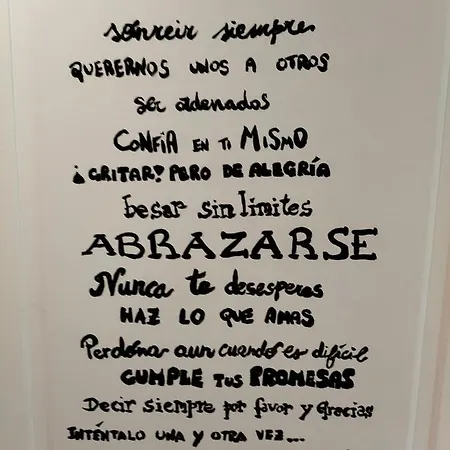 sonreir siempre
QUERERNOS UNOS A OTROS
ser ordenados
CONFÍA EN TI MISMO
¡GRITAR! PERO DE ALEGRÍA
besar sin límites
ABRAZARSE
Nunca te desesperes
HAZ LO QUE AMAS
Perdona aun cuando es difícil
CUMPLE TUS PROMESAS
Decir siempre por favor y gracias
INTÉNTALO UNA Y OTRA VEZ...